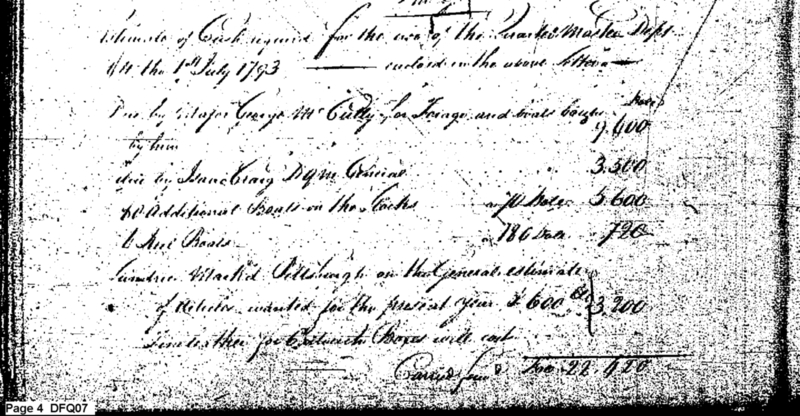 Estimate of Cash required for the use of the Quarter Master Dept
till the 1st July 1793 enclosed in the above letter
Due by Major George McCully for Forage and boats bought Dolls
by him 9,400
due by Isaac Craig DQM General 3.500
80 Additional Boats on the Stocks a 70 Dolls 5.600
6 Keel Boats a 120 Dolls 720
Sundries Mark'd Pittsburgh on the General estimate
of Articles wanted for the present year £ 600 3,200
Leather for Cartouch Boxes will cost
Carry'd forwd 22.420
Page 4 DFQ07